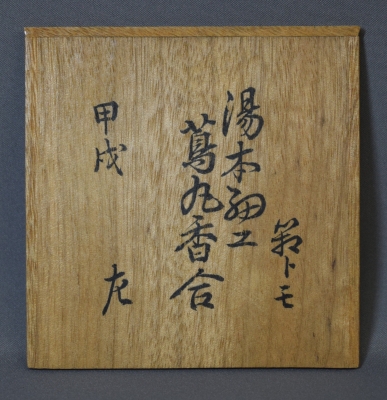 湯本細工
蔦丸香合
トモ
甲戌
左